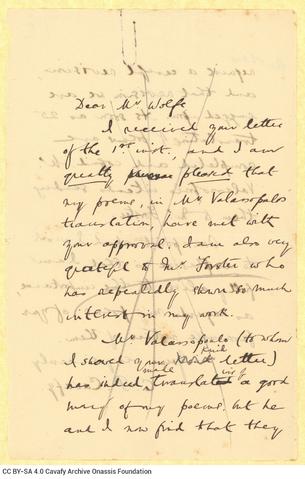 Dear Mr Wolfe
I received your letter
of the 1st inst, and I am
greatly pleased that
my poems, in Mr Valassopoulo's
translation, have met with
your approval. I am also very
grateful to Mr. Forster who
has repeatedly shown so much
interest in my work.
Mr Valassopoulo (to whom
I showed your kind letter)
has indeed made translated a good
many of my poems but he
and I now find that they
CC BY-SA 4.0 Cavafy Archive Onassis Foundation